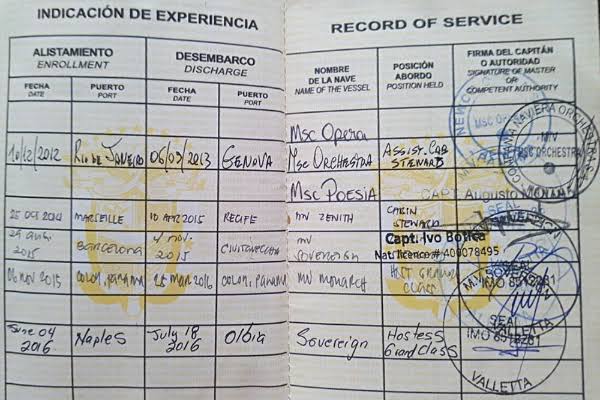 INDICACIÓN DE EXPERIENCIA
RECORD OF SERVICE
ALISTAMIENTO
ENROLLMENT
DESEMBARCO
DISCHARGE
NOMBRE
DE LA NAVE
NAME OF THE VESSEL
POSICIÓN
ABORDO
POSITION HELD
FIRMA DEL CAPITÁN
O AUTORIDAD
SIGNATURE OF MASTER
OR
COMPETENT AUTHORITY
FECHA
DATE
PUERTO
PORT
FECHA
DATE
PUERTO
PORT
Msc Opera
10/12/2012 Rio DE JANEIRO 06/03/2013 GENOVA Msc ORCHESTRA Assist. Cab
STEWARD
MSC ORCHESTRA
Msc POESIA
CAPT Augusto
25 OCT 2014 MARSEILLE 10 APR 2015 RECIFE MV ZENITH CABIN
STEWARD
2015 Barcelona nov. 2015 CIVITAVECCHIA MV
SOVEREIGN
Capt. Ivo Botica
Nat. licence # 400078495
06 NOV 2015 COLON, PANAMA 25 MAR 2016 COLON, PANAMA MV MONARCH HOST GRAND
CLASS
SEAL
VALLETTA
June 04
2016 Naples July 18
2016 Olbia Sovereign Hostess
Grand Class
VALLETTA